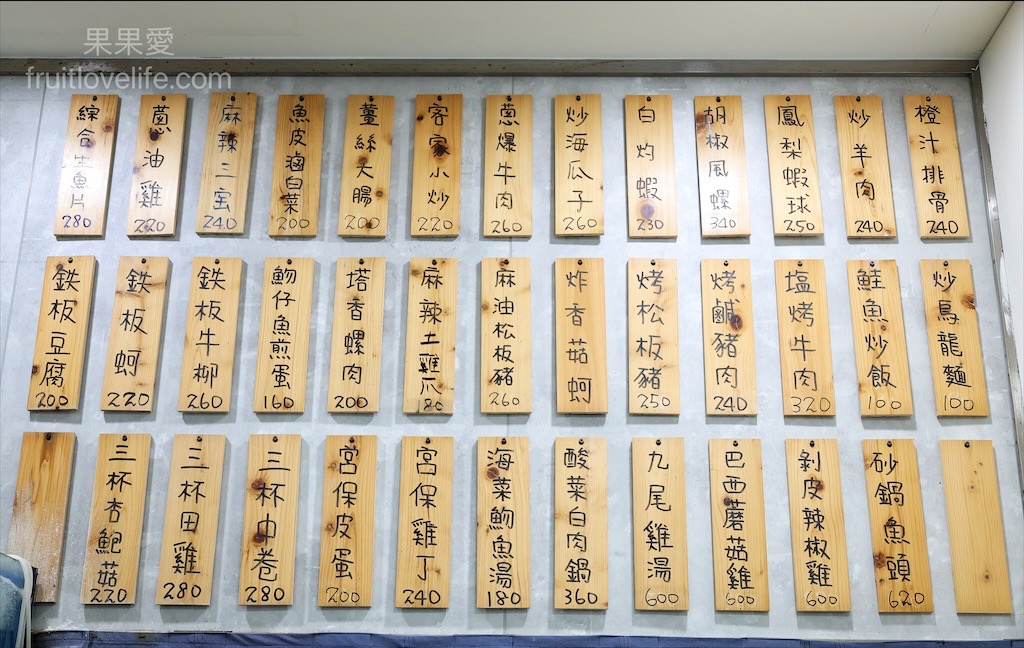 果果愛
fruitlovelife.com
綜合生魚片 280
蔥油雞 220
麻辣三宝 240
魚皮滷白菜 200
薑絲大腸 200
客家小炒 220
蔥爆牛肉 260
炒海瓜子 260
白灼蝦 230
胡椒風螺 340
鳳梨蝦球 250
炒羊肉 240
橙汁排骨 240
鉄板豆腐 200
鉄板蚵 220
鉄板牛柳 260
魩仔魚煎蛋 160
塔香螺肉 200
麻辣土雞爪 80
麻油松板豬 260
炸香菇蚵
烤松板豬 250
烤鹹豬肉 240
塩烤牛肉 320
鮭魚炒飯 100
炒烏龍麵 100
三杯杏鮑菇 220
三杯田雞 280
三杯中卷 280
宮保皮蛋 200
宮保雞丁 240
海菜魩魚湯 180
酸菜白肉鍋 360
九尾雞湯 600
巴西蘑菇雞 600
剝皮辣椒雞 600
砂鍋魚頭 620